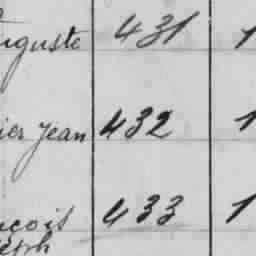 uguste 431 1
ier Jean 432 1
nçois 433 1
seph